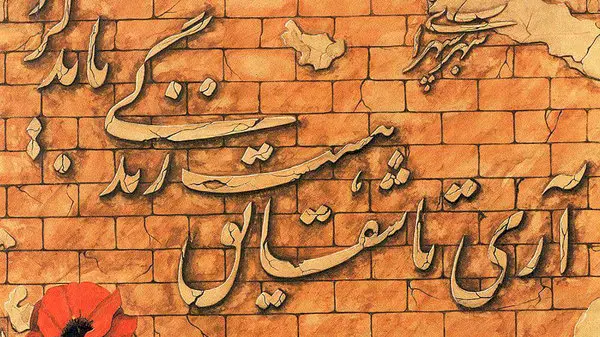 آری تا شقایق هست زندگی باید
سهراب سپهری